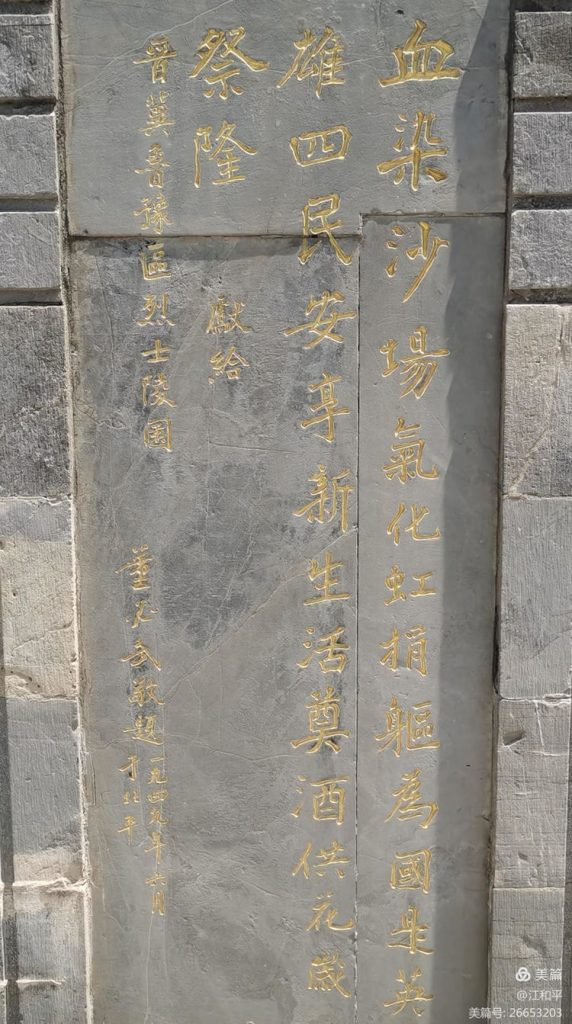 血染沙場氣化虹捐軀為國是英
雄四民安享新生活奠酒供花歲
祭隆
獻給
晋冀魯豫區烈士陵園
董必武敬題
一九四九年六月
于北平
美篇
@江和平
美篇号: 26653203